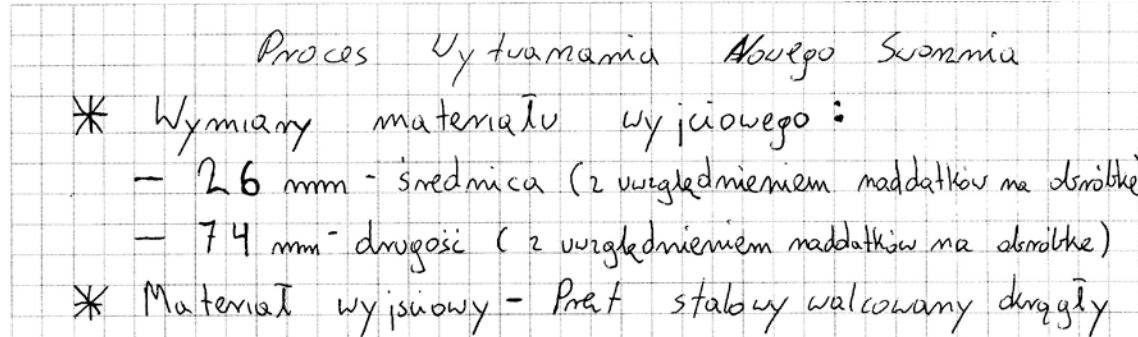 Proces Wytwarzania Nowego Sworznia
* Wymiary materiału wyjściowego:
- 26 mm - średnica (z uwzględnieniem naddatków na obróbkę
- 74 mm - długość (z uwzględnieniem naddatków na obróbkę)
* Materiał wyjściowy - Pręt stalowy walcowany okrągły